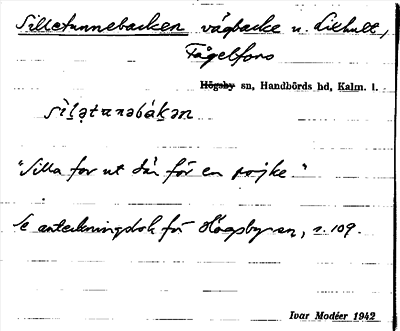 Silletunnebacken vägbacke v. Lillhult,
Fågelfors
Högsby sn, Handbörds hd, Kalm. l.
sìl̥ətɷnəbákən
"Silla for ut där för en pojke."
Se anteckningsbok för Högsbysn, s. 109.
Ivar Modéer 1942